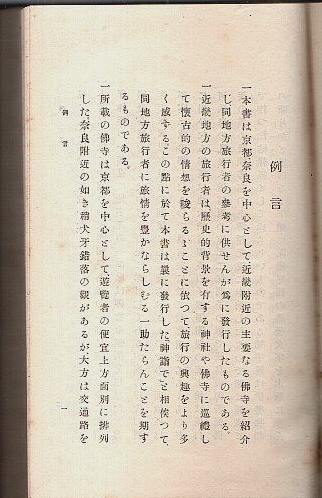 例言
一本書は京都奈良を中心として近畿附近の主要なる佛寺を紹介
し同地方旅行者の參考に供せんが爲に發行したものである。
一近畿地方の旅行者は歷史的背景を有する神社や佛寺に巡禮し
て懷古的の情想を唆らるゝことに依つて旅行の興趣をより多
く感ずるこの點に於て本書は曩に發行した「神詣で」と相俟つて
同地方旅行者に旅情を豊かならしむる一助たらんことを期す
るものである。
一所載の佛寺は京都を中心として遊覽者の便宜上方面別に排列
した奈良附近の如き稍犬牙錯落の觀があるが大方は交通路を
例言
一